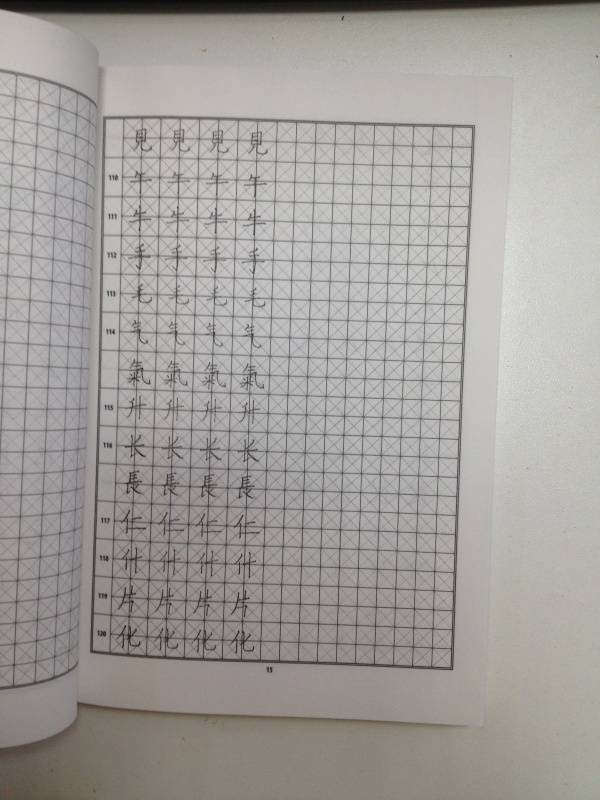 見 見 見 見
110 午 午 午 午
111 牛 牛 牛 牛
112 手 手 手 手
113 毛 毛 毛 毛
114 气 气 气 气
氣 氣 氣 氣
115 升 升 升 升
116 长 长 长 长
長 長 長 長
117 仁 仁 仁 仁
118 什 什 什 什
119 片 片 片 片
120 化 化 化 化
15